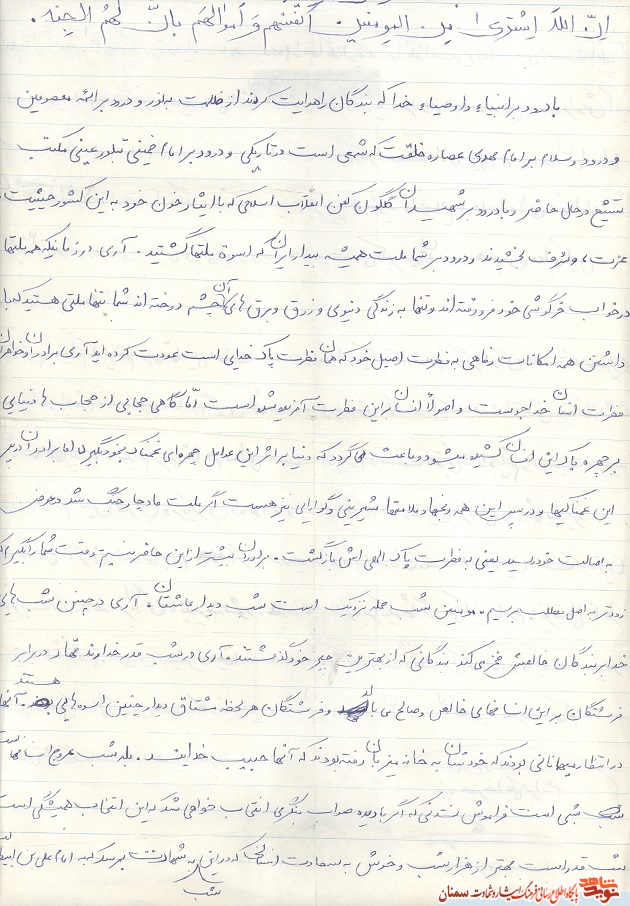 انّ اللهَ اِشتری مِن المومنین انفسهم وَ اَموالهُم بِانَّ لَهُم الجنه.
با درود بر انبیاء و اوصیاء خدا که بندگان را هدایت کردند از ظلمت به نور و درود بر ائمه معصومین
و درود و سلام بر امام مهدی عصاره خلقت که شمعی است در تاریکی و درود بر امام خمینی تبلور عینی مکتب
تشیع در حال حاضر و با درود بر شهیدان گلگون کفن انقلاب اسلامی که با ایثار خون خود به این کشور حیثیت،
عزت، و شرف بخشیدند و درود بر شما ملت همیشه بیدار ایران که اسوۀ ملتها گشتید. آری در زمانیکه همه ملتها
در خواب خرگوشی خود فرو رفته اند و تنها به زندگی دنیوی و زرق و برق های آن چشم دوخته اند شما تنها ملتی هستید که با
داشتن همه امکانات رفاهی به فطرت اصیل خود که همان فطرت پاک خدایی است عودت کرده اید آری برادران و خواهران
فطرت انسان خداجوست و اصولاً انسان بر این فطرت آفریده شده است امّا گاهی حجابی از حجاب ها دنیایی
بر چهره پاک این انسان کشیده میشود و باعث می گردد که دنیا بر اثر این عوامل چهره ای غمناک بخود بگیرد اما برادران در پس
این غمناکیها و در پس این همه رنجها و ملامتها شیرینی و گوارایی نیز هست اگر ملت ما دچار جنگ شد در عوض
به اصالت خود رسید یعنی به فطرت پاک الهی اش بازگشت. برادران بیشتر از این حاضر نیستم وقت شما را بگیرم که
زودتر به اصل مطلب برسیم. مومنین شب حمله نزدیک است شب دیدار عاشقان. آری در چنین شب هایی
خدا بر بندگان خالصش فخر می کند بندگانی که از بهترین چیز خود گذشتند. آری در شب قدر خداوند قهار در برابر
فرشتگان بر این انسانهای خالص و صالح می بالد و فرشتگان هر لحظه مشتاق دیدار چنین اسوه هایی هستند. آنها
در انتظار میهمانانی بودند که خودشان به خانه میزبان رفته بودند که آنها حبیب خدایند. بله شب عروج انسانهاست
شبی است فراموش نشدنی که اگر با دیده صواب بنگری انتخاب خواهی شد که این انتخاب همیشگی است
شب قدر است بهتر از هزار شب و خوش به سعادت انسانی که در این شب به شهادت برسد که به امام علی بن ابیطالب
شاهد
نوید
پایگاه اطلاع رسانی فرهنگ ایثار و شهادت سمنان